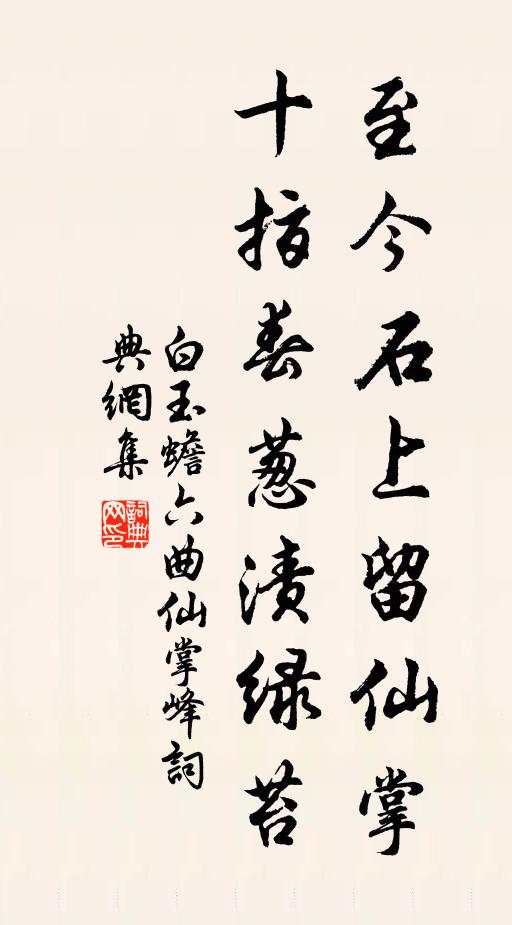 至今石上留仙掌
十指春葱渍绿苔
白玉蟾六曲仙掌峰詞
典網集
詞典网印